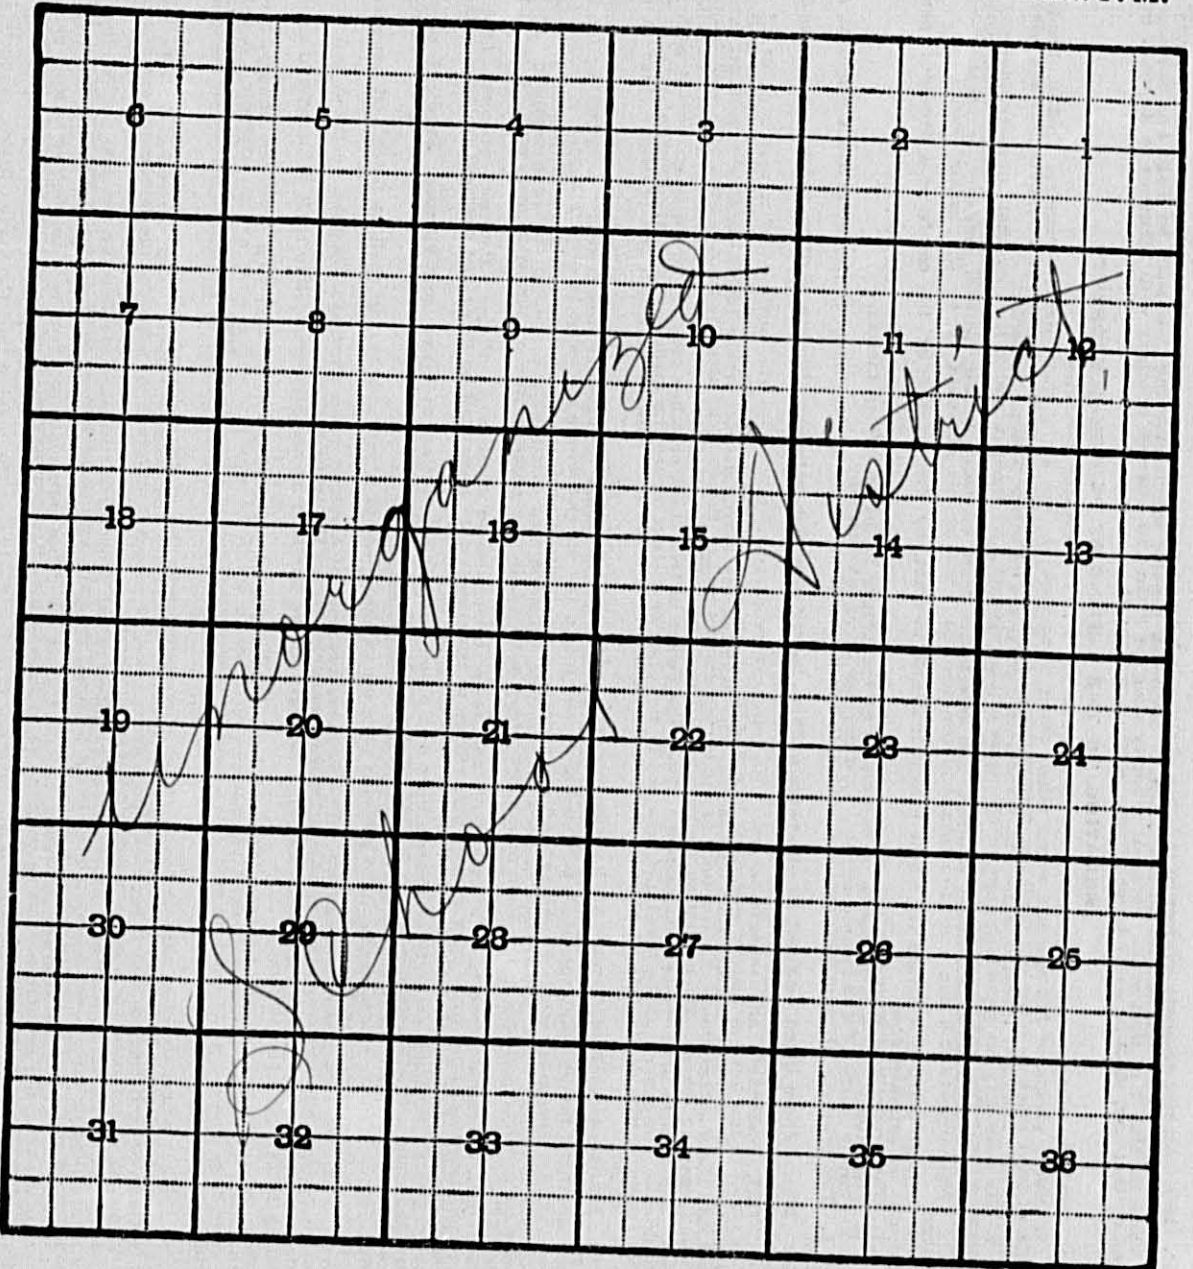 6 5 4 3 2 1
7 8 9 10 11 12
18 17 16 15 14 13
19 20 21 22 23 24
30 29 28 27 26 25
31 32 33 34 35 36
unorganized District
School